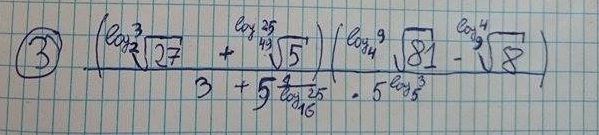 ③ (log₂³√27 + log₄₉²⁵√5) (log₄⁹√81 - log₉⁴√8)
3 + 5 log₁₆²⁵ · 5 log₅³